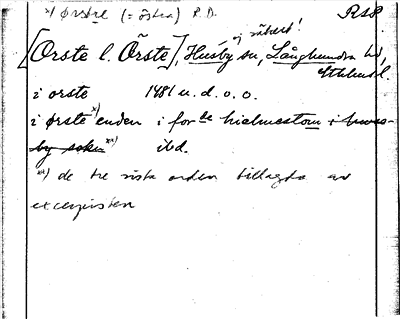 x) Ørstre (= östra) P.D. R58
ej säkert!
[Orste l. Örste], Husby sn, Långhundra hd,
i orste 1481 u.d. o.o.
i ørste x) enden i for de hielmestom i hws-
by sokn xx) ibd.
xx) de tre sista orden tillagda av
excerpisten